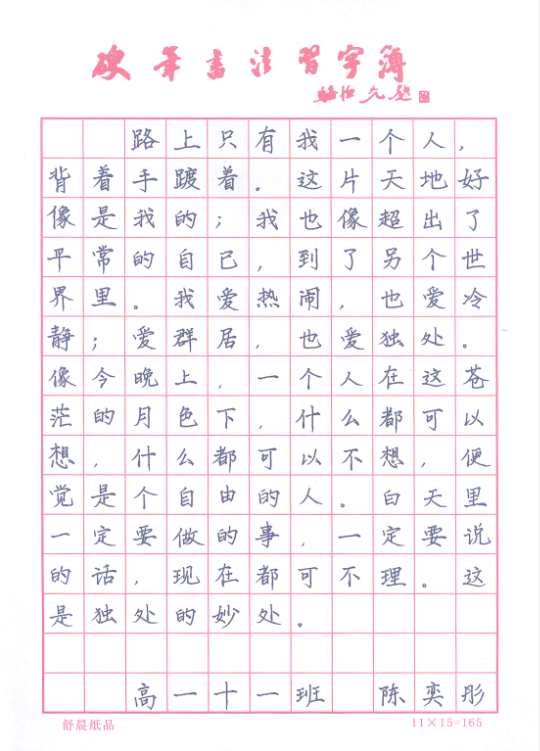 硬笔书法习字簿
路上只有我一个人，
背着手踱着。这片天地好
像是我的；我也像超出了
平常的自己，到了另个世
界里。我爱热闹，也爱冷
静；爱群居，也爱独处。
像今晚上，一个人在这苍
茫的月色下，什么都可以
想，什么都可以不想，便
觉是个自由的人。白天里
一定要做的事，一定要说
的话，现在都可不理。这
是独处的妙处。
高一十一班 陈奕彤
舒晨纸品 11×15=165